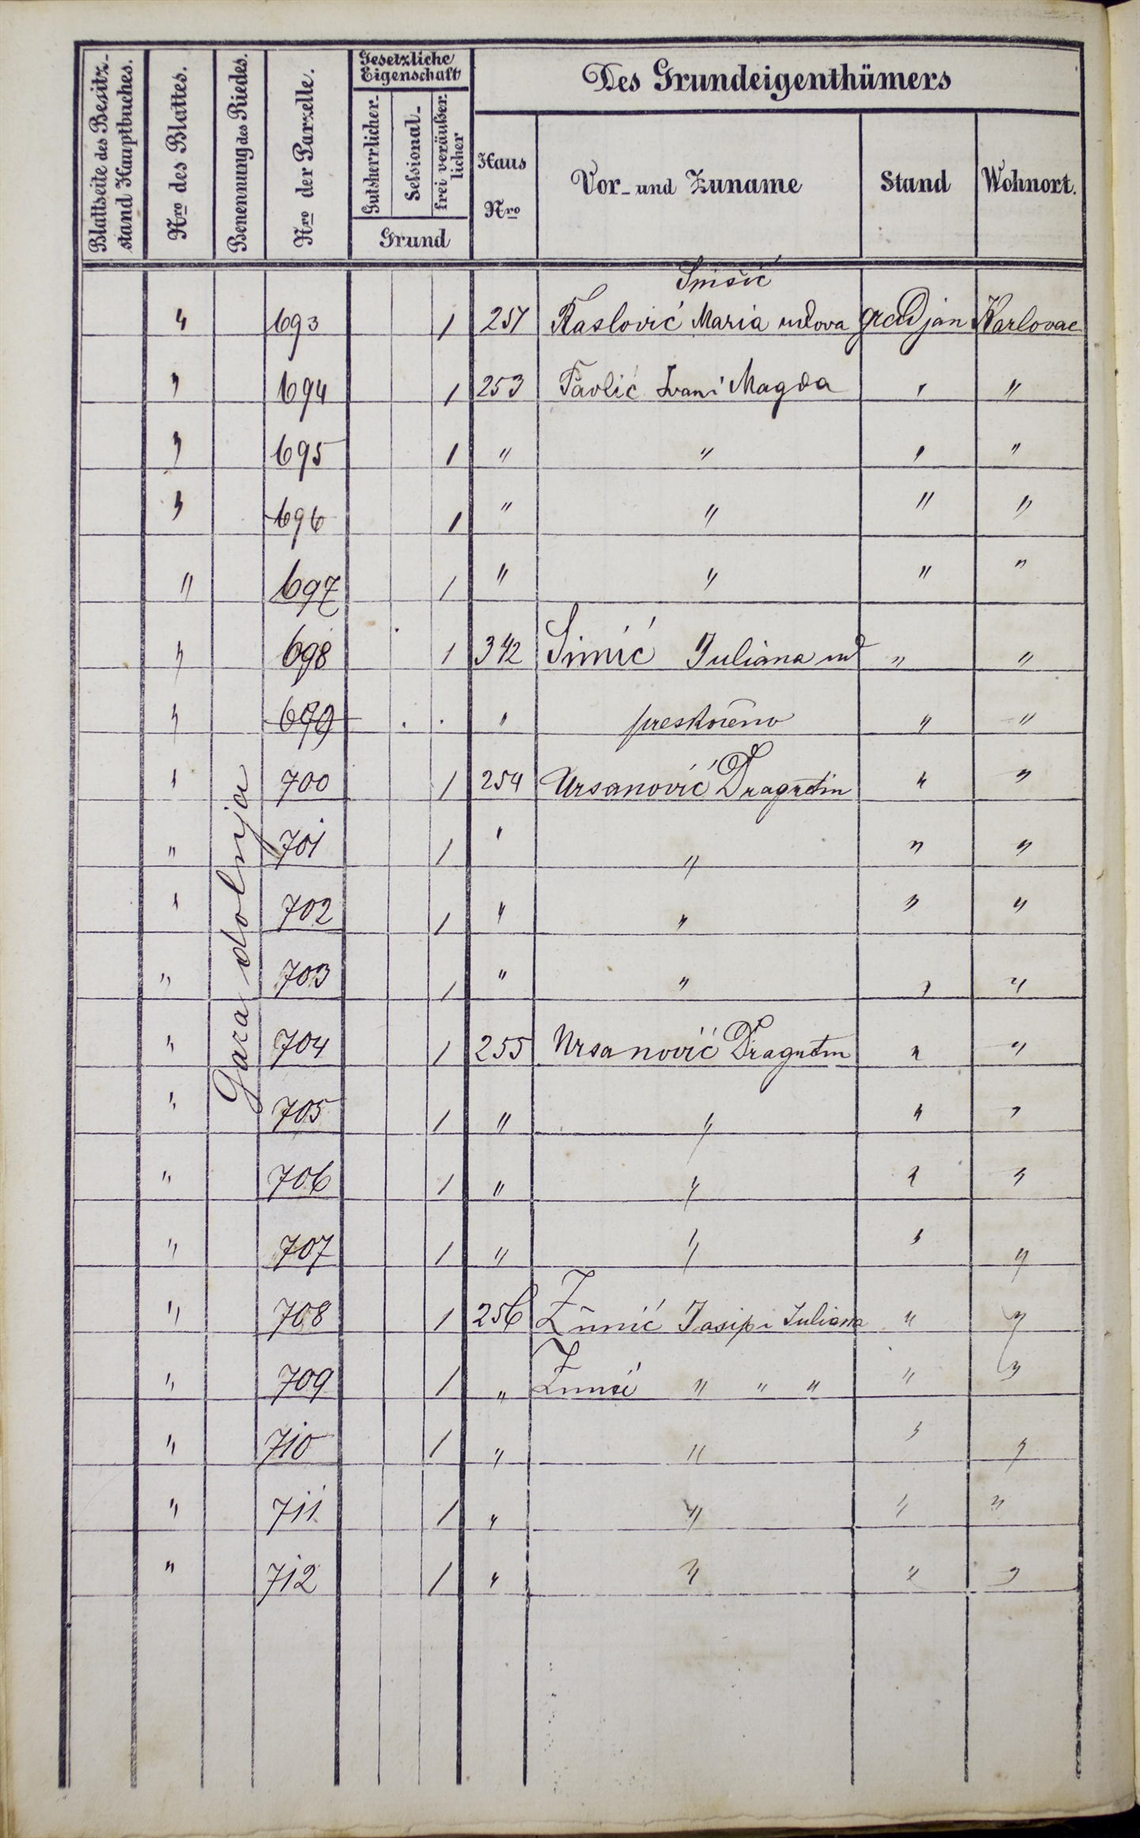 Blattseite des Besitz-
stand Hauptbuches.
Nro des Blattes.
Benennung des Riedes.
Nro der Parzelle.
Gesetzliche
Eigenschaft
Gutsherrlicher.
Sessional-
frei veräußer
licher
Grund
Des Grundeigenthümers
Haus
Nro
Vor- und Zuname
Stand
Wohnort.
Gaza dolnja
" 693 1 257 Maria udova gradjan Karlovac
" 694 1 253 Pavlić Ivan i Magda " "
" 695 1 " " " "
" 696 1 " " " "
" 697 1 " " " "
" 698 1 342 Simić Juliana ud " "
" 699 " preskočeno " "
" 700 1 254 Ursanović Dragutin " "
" 701 1 " " " "
" 702 1 " " " "
" 703 1 " " " "
" 704 1 255 Ursanović Dragutin " "
" 705 1 " " " "
" 706 1 " " " "
" 707 1 " " " "
" 708 1 256 Žunić Josip i Juliana " "
" 709 1 " Žunić " " " " "
" 710 1 " " " "
" 711 1 " " " "
" 712 1 " " " "